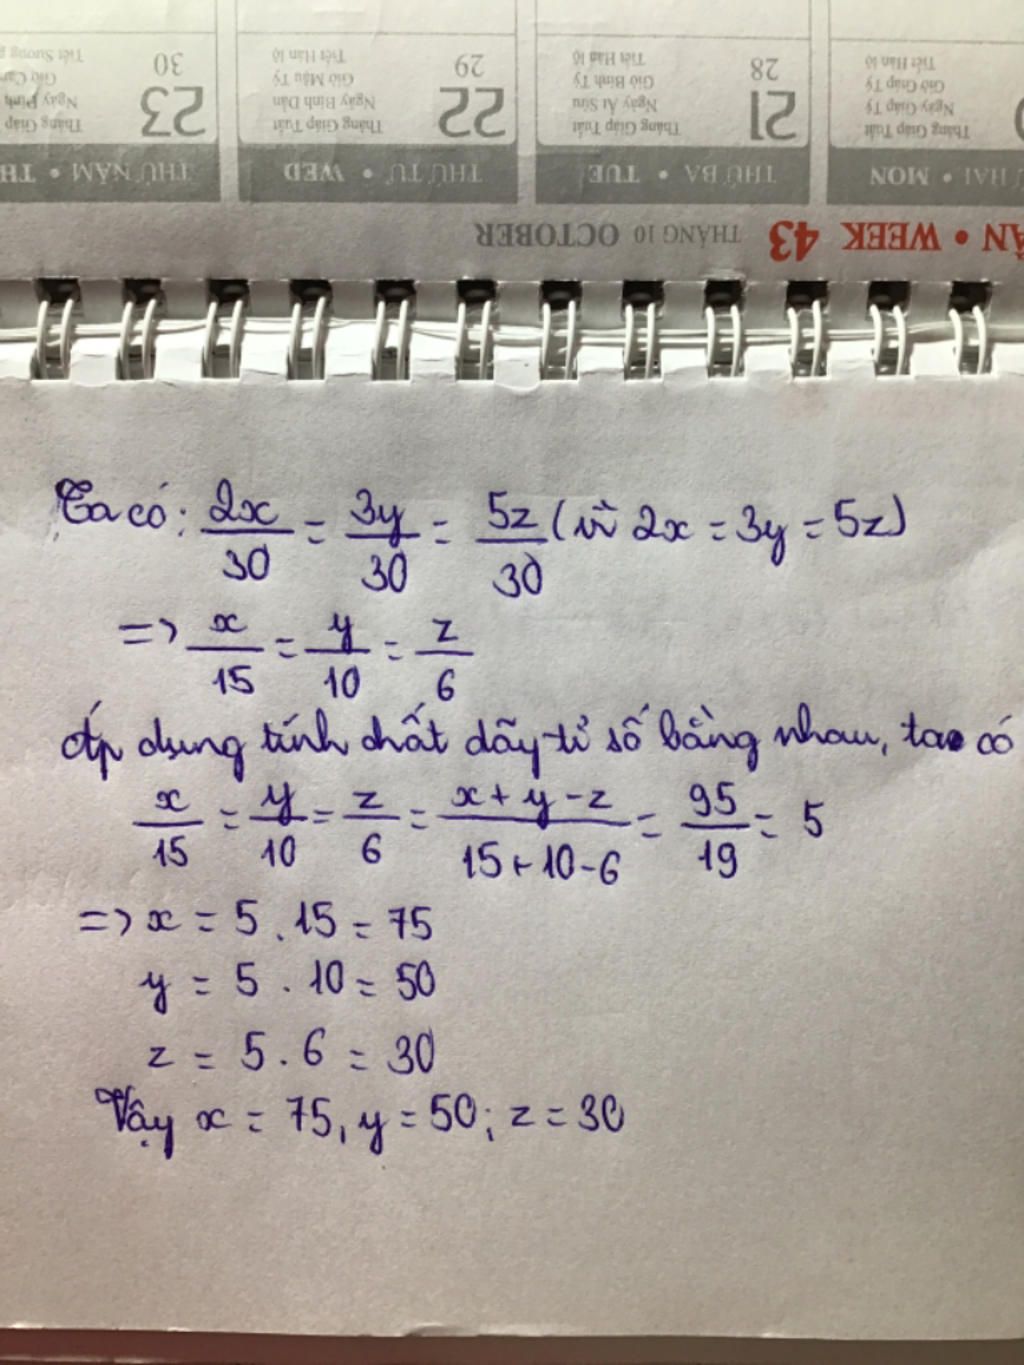 30
Tiết Sương
Ngày Đinh
Tháng Giáp
23
29
Tiết Hàn lộ
Giờ Mậu Tý
Ngày Bính Dần
Tháng Giáp Tuất
22
28
Tiết Hàn lộ
Giờ Bính Tý
Ngày Ất Sửu
Tháng Giáp Tuất
21
Tiết Hàn lộ
Giờ Giáp Tý
Ngày Giáp Tý
Tháng Giáp Tuất
THỨ NĂM • TH
THỨ TƯ • WED
THỨ BA • TUE
HAI • MON
ẦN • WEEK 43 THÁNG 10 OCTOBER
Ta có: 2x/30 = 3y/30 = 5z/30 (vì 2x = 3y = 5z)
=> x/15 = y/10 = z/6
Áp dụng tính chất dãy tỉ số bằng nhau, ta có
x/15 = y/10 = z/6 = x+y-z/15+10-6 = 95/19 = 5
=> x = 5 . 15 = 75
y = 5 . 10 = 50
z = 5 . 6 = 30
Vậy x = 75, y = 50; z = 30